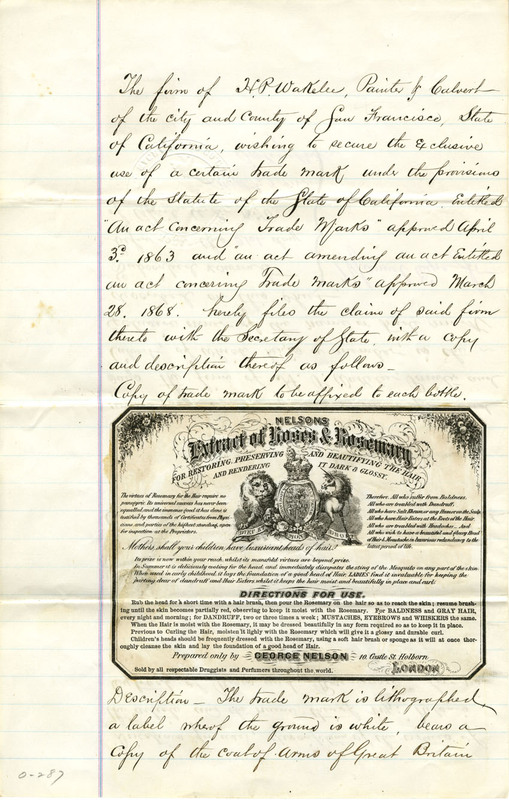 The firm of H.P. Wakelee, Painter & Culvert
of the city and County of San Francisco, State
of California, wishing to secure the Exclusive
use of a certain trade mark under the provisions
of the Statute of the State of California. Entitled
"An act concerning Trade Marks" approved April
3d. 1863 and "an act amending an act Entitled
an act concering Trade Marks" approved March
28. 1868. hereby files the claim of said firm
thereto with the Secretary of State. with a copy
and description thereof as follows—
Copy of trade mark to be affixed to each bottle.
NELSONS
Extract of Roses & Rosemary
FOR RESTORING, PRESERVING AND BEAUTIFYING THE HAIR
AND RENDERING IT DARK & GLOSSY.
The virtues of Rosemary for the Hair require no
panegyric. Its universal success has never been
equalled, and the immense good it has done is
testified by thousands of Certificates from Physi-
cians, and parties of the highest standing, open
for inspection at the Proprietors.
Therefore. All who suffer from Baldness.
All who are troubled with Dandruff.
All who have Salt Rheum or any Humor on the Scalp.
All who have Hair Eaters at the Roots of the Hair.
All who are troubled with Headache. And
All who wish to have a beautiful and glossy Head
of Hair & Moustache in luxuriant redundancy to the
latest period of life.
DIEU ET MON DROIT
Mothers shall your children have luxuriant heads of hair?
Its price is now within your reach whilst its manifold virtues are beyond prize.
In Summer it is deliciously cooling for the head and immediately dissipates the sting of the Mosquito on any part of the skin.
When used in early childhood, it lays the foundation of a good head of Hair. LADIES find it invaluable for keeping the
parting clear of dandruff and Hair Eaters whilst it keeps the hair moist and beautifully in place and curl!
DIRECTIONS FOR USE.
Rub the head for a short time with a hair brush, then pour the Rosemary on the hair so as to reach the skin; resume brush-
ing until the skin becomes partially red, observing to keep it moist with the Rosemary. For BALDNESS and GRAY HAIR,
every night and morning; for DANDRUFF, two or three times a week; MUSTACHES, EYEBROWS and WHISKERS the same.
When the Hair is moist with the Rosemary, it may be dressed beautifully in any form required so as to keep it in place.
Previous to Curling the Hair, moisten it lightly with the Rosemary which will give it a glossy and durable curl.
Children's heads should be frequently dressed with the Rosemary, using a soft hair brush or sponge as it will at once thor-
oughly cleanse the skin and lay the foundation of a good head of Hair.
Prepared only by GEORGE NELSON 10 Castle St. Holborn
LONDON
Sold by all respectable Druggists and Perfumers throughout the world.
Description— The trade mark is lithographed,
a label whereof the ground is white, bears a
Copy of the coat of Arms of Great Britain
0-287